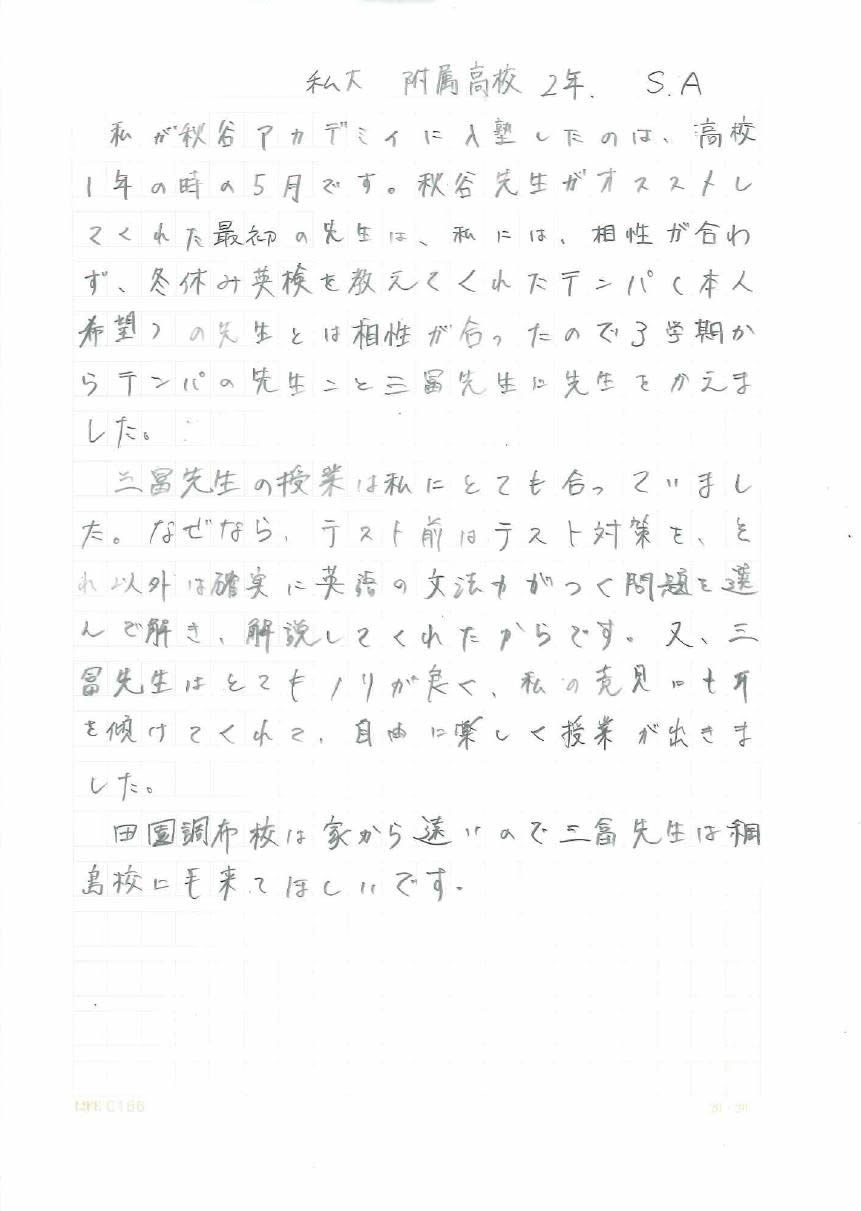 私大 附属高校 2年. S.A
私が秋谷アカデミィに入塾したのは、高校
1年の時の5月です。秋谷先生がオススメし
てくれた最初の先生は、私には、相性が合わ
ず、冬休み英検を教えてくれたテンパ(本人
希望)の先生とは相性が合ったので3学期か
らテンパの先生こと三冨先生に先生をかえま
した。
三冨先生の授業は私にとても合っていまし
た。なぜなら、テスト前はテスト対策を、そ
れ以外は確実に英語の文法力がつく問題を選
んで解き、解説してくれたからです。又、三
冨先生はとてもノリが良く、私の意見にも耳
を傾けてくれて、自由に楽しく授業が出きま
した。
田園調布校は家から遠いので三冨先生は綱
島校にも来てほしいです。
LIFE C166
20×20